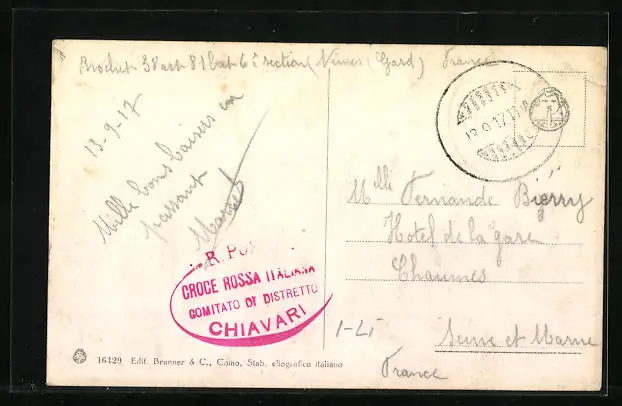 Brochet 38 art 81 bat 6e section (Nimes (Gard) France
13-9-17
Mille bons baisers en
passant
Marcel
R. Po
CROCE ROSSA ITALIANA
COMITATO DI DISTRETTO
CHIAVARI
13 9 17
Mlle Fernande Bierry
Hotel de la gare
Chaumes
Seine et Marne
France
16429 Edit. Brunner & C., Como, Stab. eliografico italiano